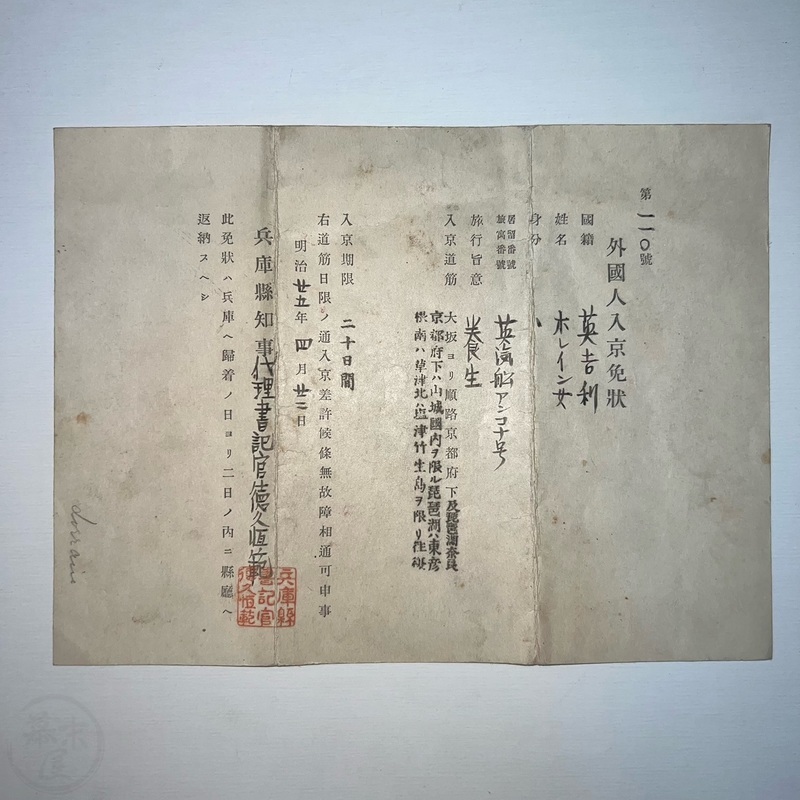 第一一〇號
外國人入京免狀
國籍 英吉利
姓名 ホレイン女
身分 〃
居留番號
旅寓番號 英滊舩アンコナ号
旅行旨意 養生
入京道筋 大坂ヨリ順路京都府下及琵琶湖奈良
京都府下ハ山城國內ヲ限ル琵琶湖ハ東彦
根南ハ草津北ハ塩津竹生島ヲ限リ往復
入京期限 二十日間
右道筋日限ノ通入京差許候條無故障相通可申事
明治廿五年四月廿二日
兵庫縣知事代理書記官德久恒範
兵庫縣
書記官
德久恒範
此免狀ハ兵庫ヘ歸着ノ日ヨリ二日ノ內ニ縣廳ヘ
返納スヘシ
Lorrain
幕末屋